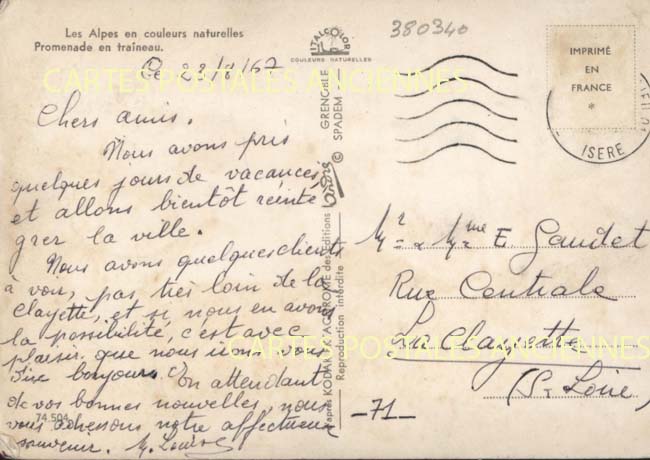 Les Alpes en couleurs naturelles
Promenade en traîneau.
ITALCOLOR
COULEURS NATURELLES
380340
IMPRIMÉ
EN
FRANCE
*
ISERE
Ce 23/8/67
CARTES POSTALES ANCIENNES
Chers amis.
Nous avons pris
quelques jours de vacances,
et allons bientôt réinté
grer la ville.
Nous avons quelques clients
à voir, pas très loin de la
Clayette, et si nous en avons
la possibilité, c'est avec
plaisir que nous irons vous
dire bonjour. En attendant
de vos bonnes nouvelles, nous
vous adressons notre affectueux
souvenir. M. Louise
74.504
GRENOBLE
SPADEM
©
d'après KODAK EKTACHROME des Éditions
Reproduction interdite
Mr & Mme E. Gaudet
Rue Centrale
La Clayette
CARTES POSTALES ANCIENNES
(S. Loire)
-71-